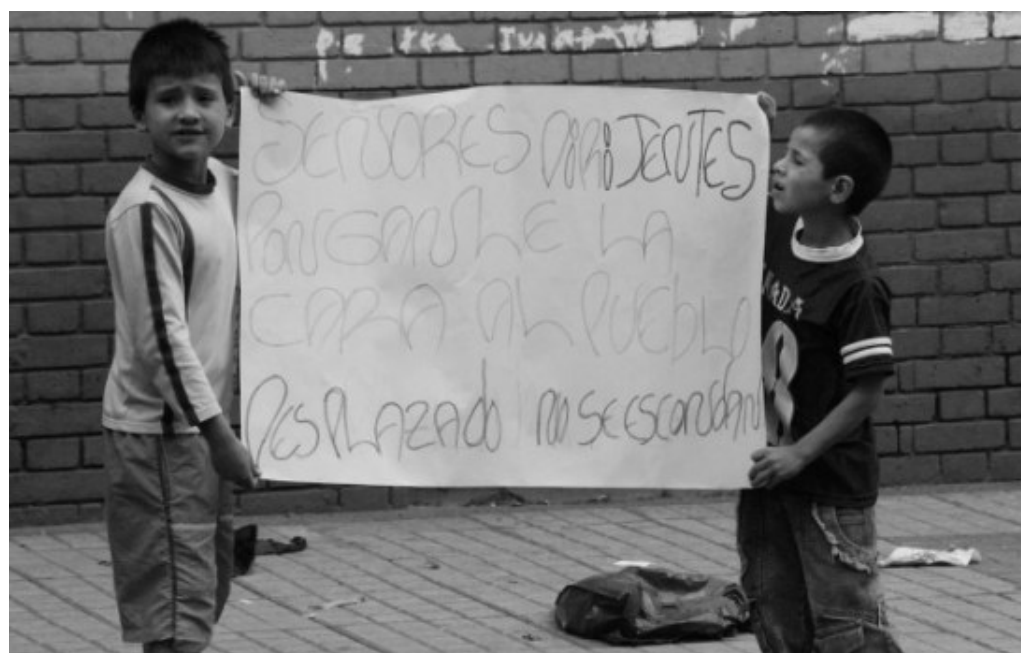 SENORES DiRiJENTES
PONGANLE LA
CARA AL PUEBLO
DESPLAZADO NO SE ESCONDAN